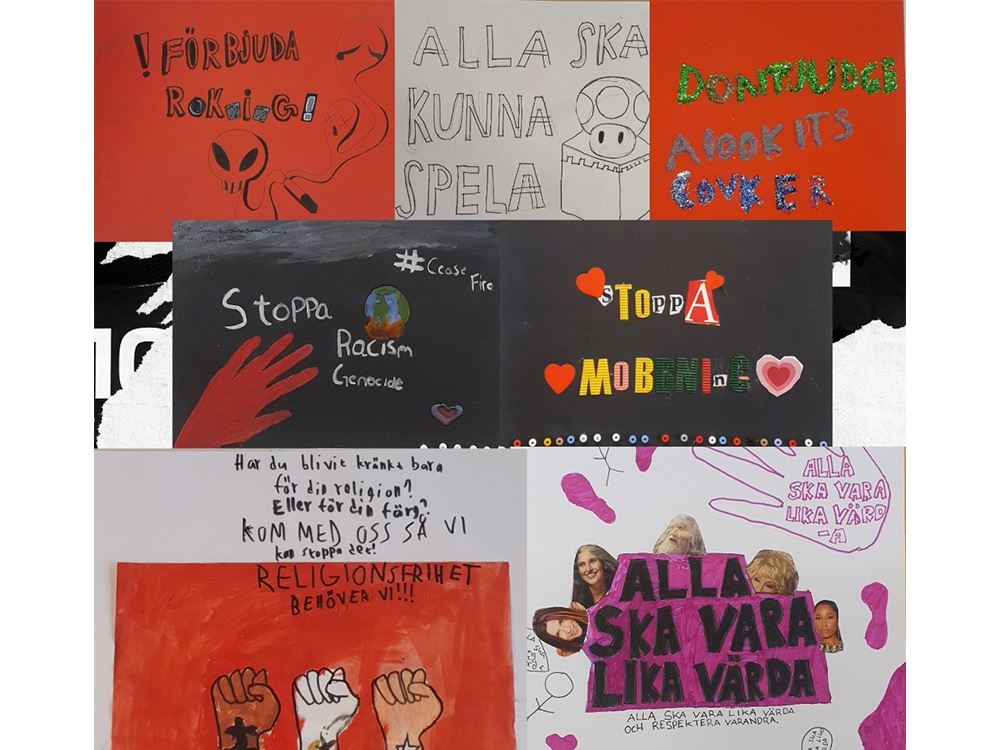 ! FÖRBJUDA
RöKNiNG!
ALLA SKA
KUNNA
SPELA
DONTJUDGE
A lOOK ITS
COVKER
# Cease
Fire
Stoppa
Racism
Genocide
STOPPA
MOBBNING
Har du blivit kränkt bara
för din religion?
Eller för din färg?
KOM MED OSS SÅ VI
kan stoppa det!
RELIGIONSFRIHET
BEHÖVER VI!!!
ALLA
SKA VARA
LIKA VÄRD
-A
ALLA
SKA VARA
LIKA VÄRDA
ALLA SKA VARA LIKA VÄRDA
OCH RESPEKTERA VARANDRA.